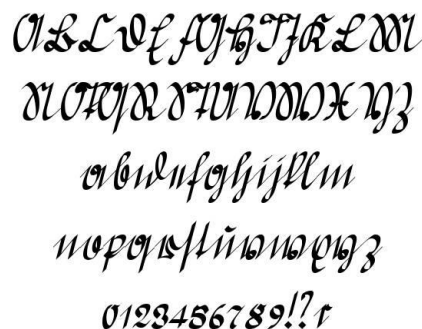 ABCDEFGHIJKLM
NOPQRSTUVWXYZ
abcdefghijklm
nopqrstuvwxyz
0123456789!?